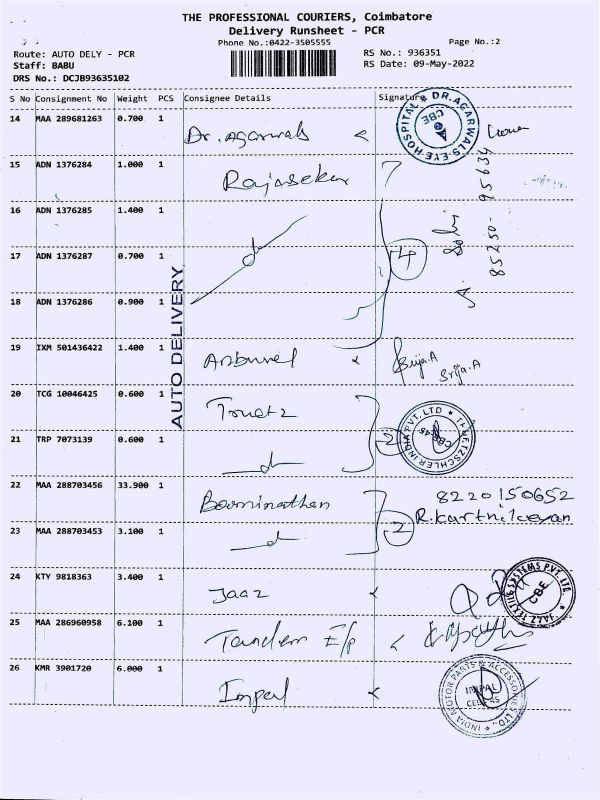 THE PROFESSIONAL COURIERS, Coimbatore
Delivery Runsheet - PCR
Phone No.:0422-3505555
Page No.:2
Route: AUTO DELY - PCR
Staff: BABU
DRS No.: DCJB93635102
RS No.: 936351
RS Date: 09-May-2022
S No Consignment No Weight PCS Consignee Details Signature
14 MAA 289681263 0.700 1 Dr. Agarwals
DR.AGARWALS EYE HOSPITAL CBE
15 ADN 1376284 1.000 1 Rajasekar
16 ADN 1376285 1.400 1
17 ADN 1376287 0.700 1 4
18 ADN 1376286 0.900 1
85250-95634
AUTO DELIVERY
19 IXM 501436422 1.400 1 Srija.A
Srija.A
20 TCG 10046425 0.600 1 Truetz
TRUETZSCHLER INDIA PVT. LTD CBE-45
21 TRP 7073139 0.600 1 2
22 MAA 288703456 33.900 1 Boominathan 8220150652
R.Karthikeyan
23 MAA 288703453 3.100 1 2
24 KTY 9818363 3.400 1 Jaaz
JAAZ TEXTILE SYSTEMS PVT. LTD CBE
25 MAA 286960958 6.100 1 Tandem E/p
26 KMR 3901720 6.000 1 Impal
INDIA MOTOR PARTS & ACCESSORIES LTD., IMPAL CBE-45